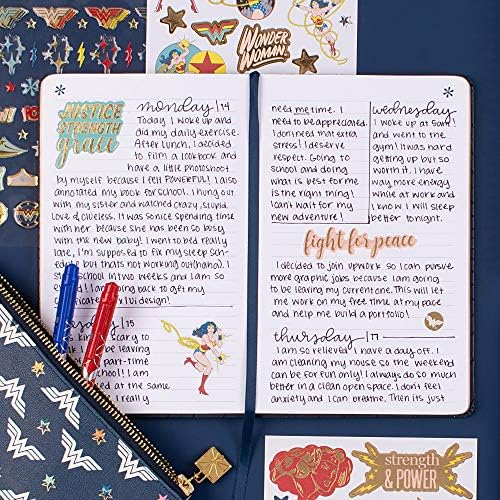 WONDER
WOMAN
JUSTICE
STRENGTH
grace
monday/14
Today I woke up and
did my daily exercise.
After lunch, I decided
to film a lookbook and
have a little photoshoot
by myself because I felt POWERFUL! I also
annotated my book for school. I hung out
with my sister and watched crazy, stupid,
love & clueless. It was so nice spending time
with her because she has been so busy
with the new baby! I went to bed really
late, I'm supposed to fix my sleep sch-
but thats not working out (haha). I
school in two weeks and I am so
I am going back to get my
UI design!
/15
scary to
be leaving
part
I am
at the same
I really
need me time. I
need to be appreciated.
I don't need that extra
stress! I deserve
respect. Going to
school and doing
what is best for me
is the right thing!
I can't wait for my
new adventure!
wednesday
I woke up at 5am!
and went to the
gym! It was hard
getting up but so
worth it. I have
way more energy
while at work and
I know I will sleep
better tonight.
fight for peace
I decided to join upwork so I can pursue
more graphic jobs because I am going
to be leaving my current one. This will let
me work on my free time at my pace
and help me build a portfolio!
thursday/17
I am so relieved I have a day off. I
am cleaning my house so the weekend
can be for fun only! I always do so much
better in a clean open space. I don't feel
anxiety and I can breathe. Then its just
strength
& POWER